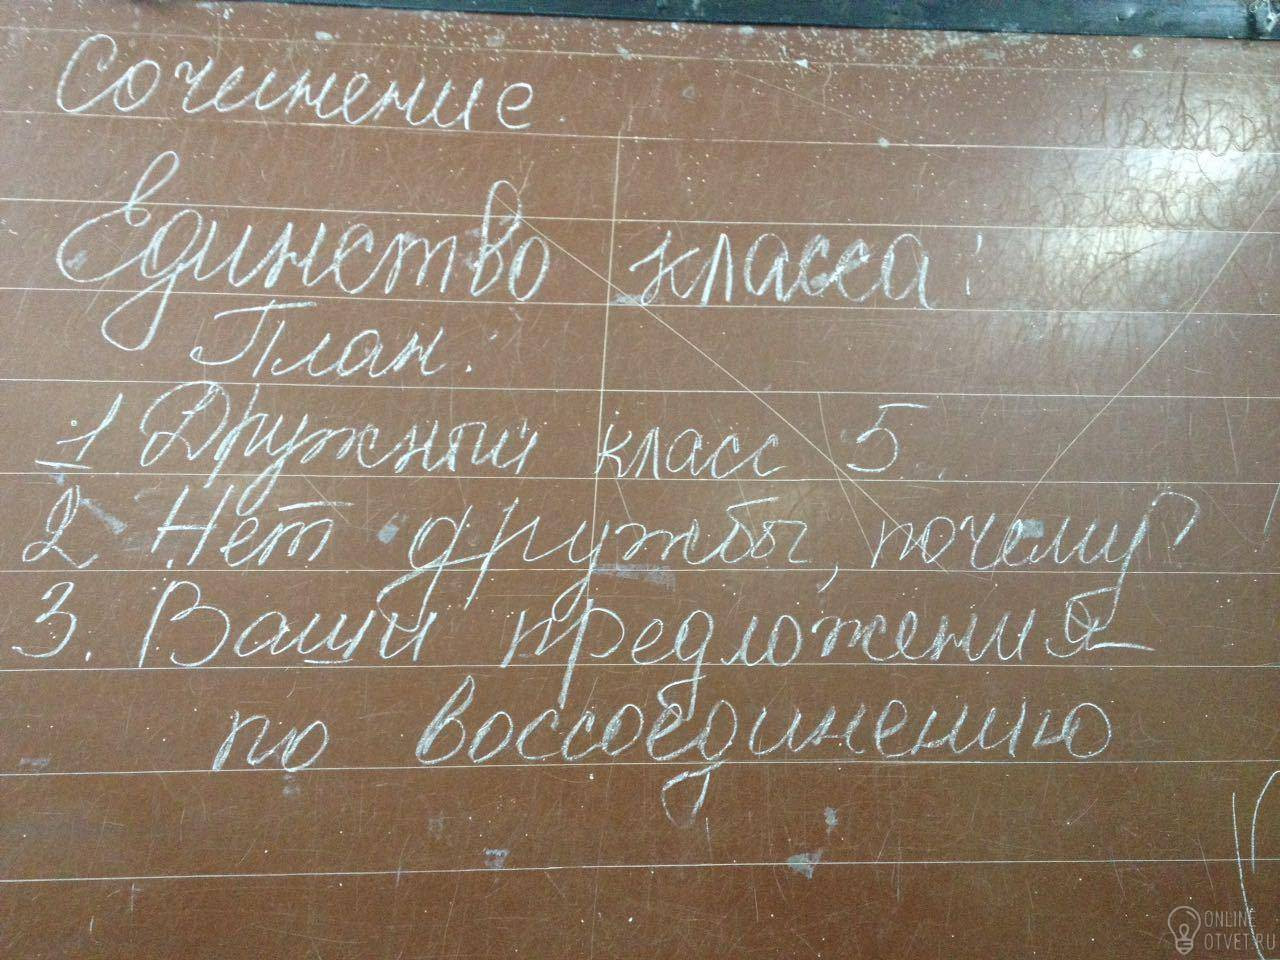 Сочинение.
Единство класса:
План:
1 Дружный класс 5
2 Нет дружбы, почему?
3. Ваши предложения
по воссоединению
ONLINE
OTVET.RU